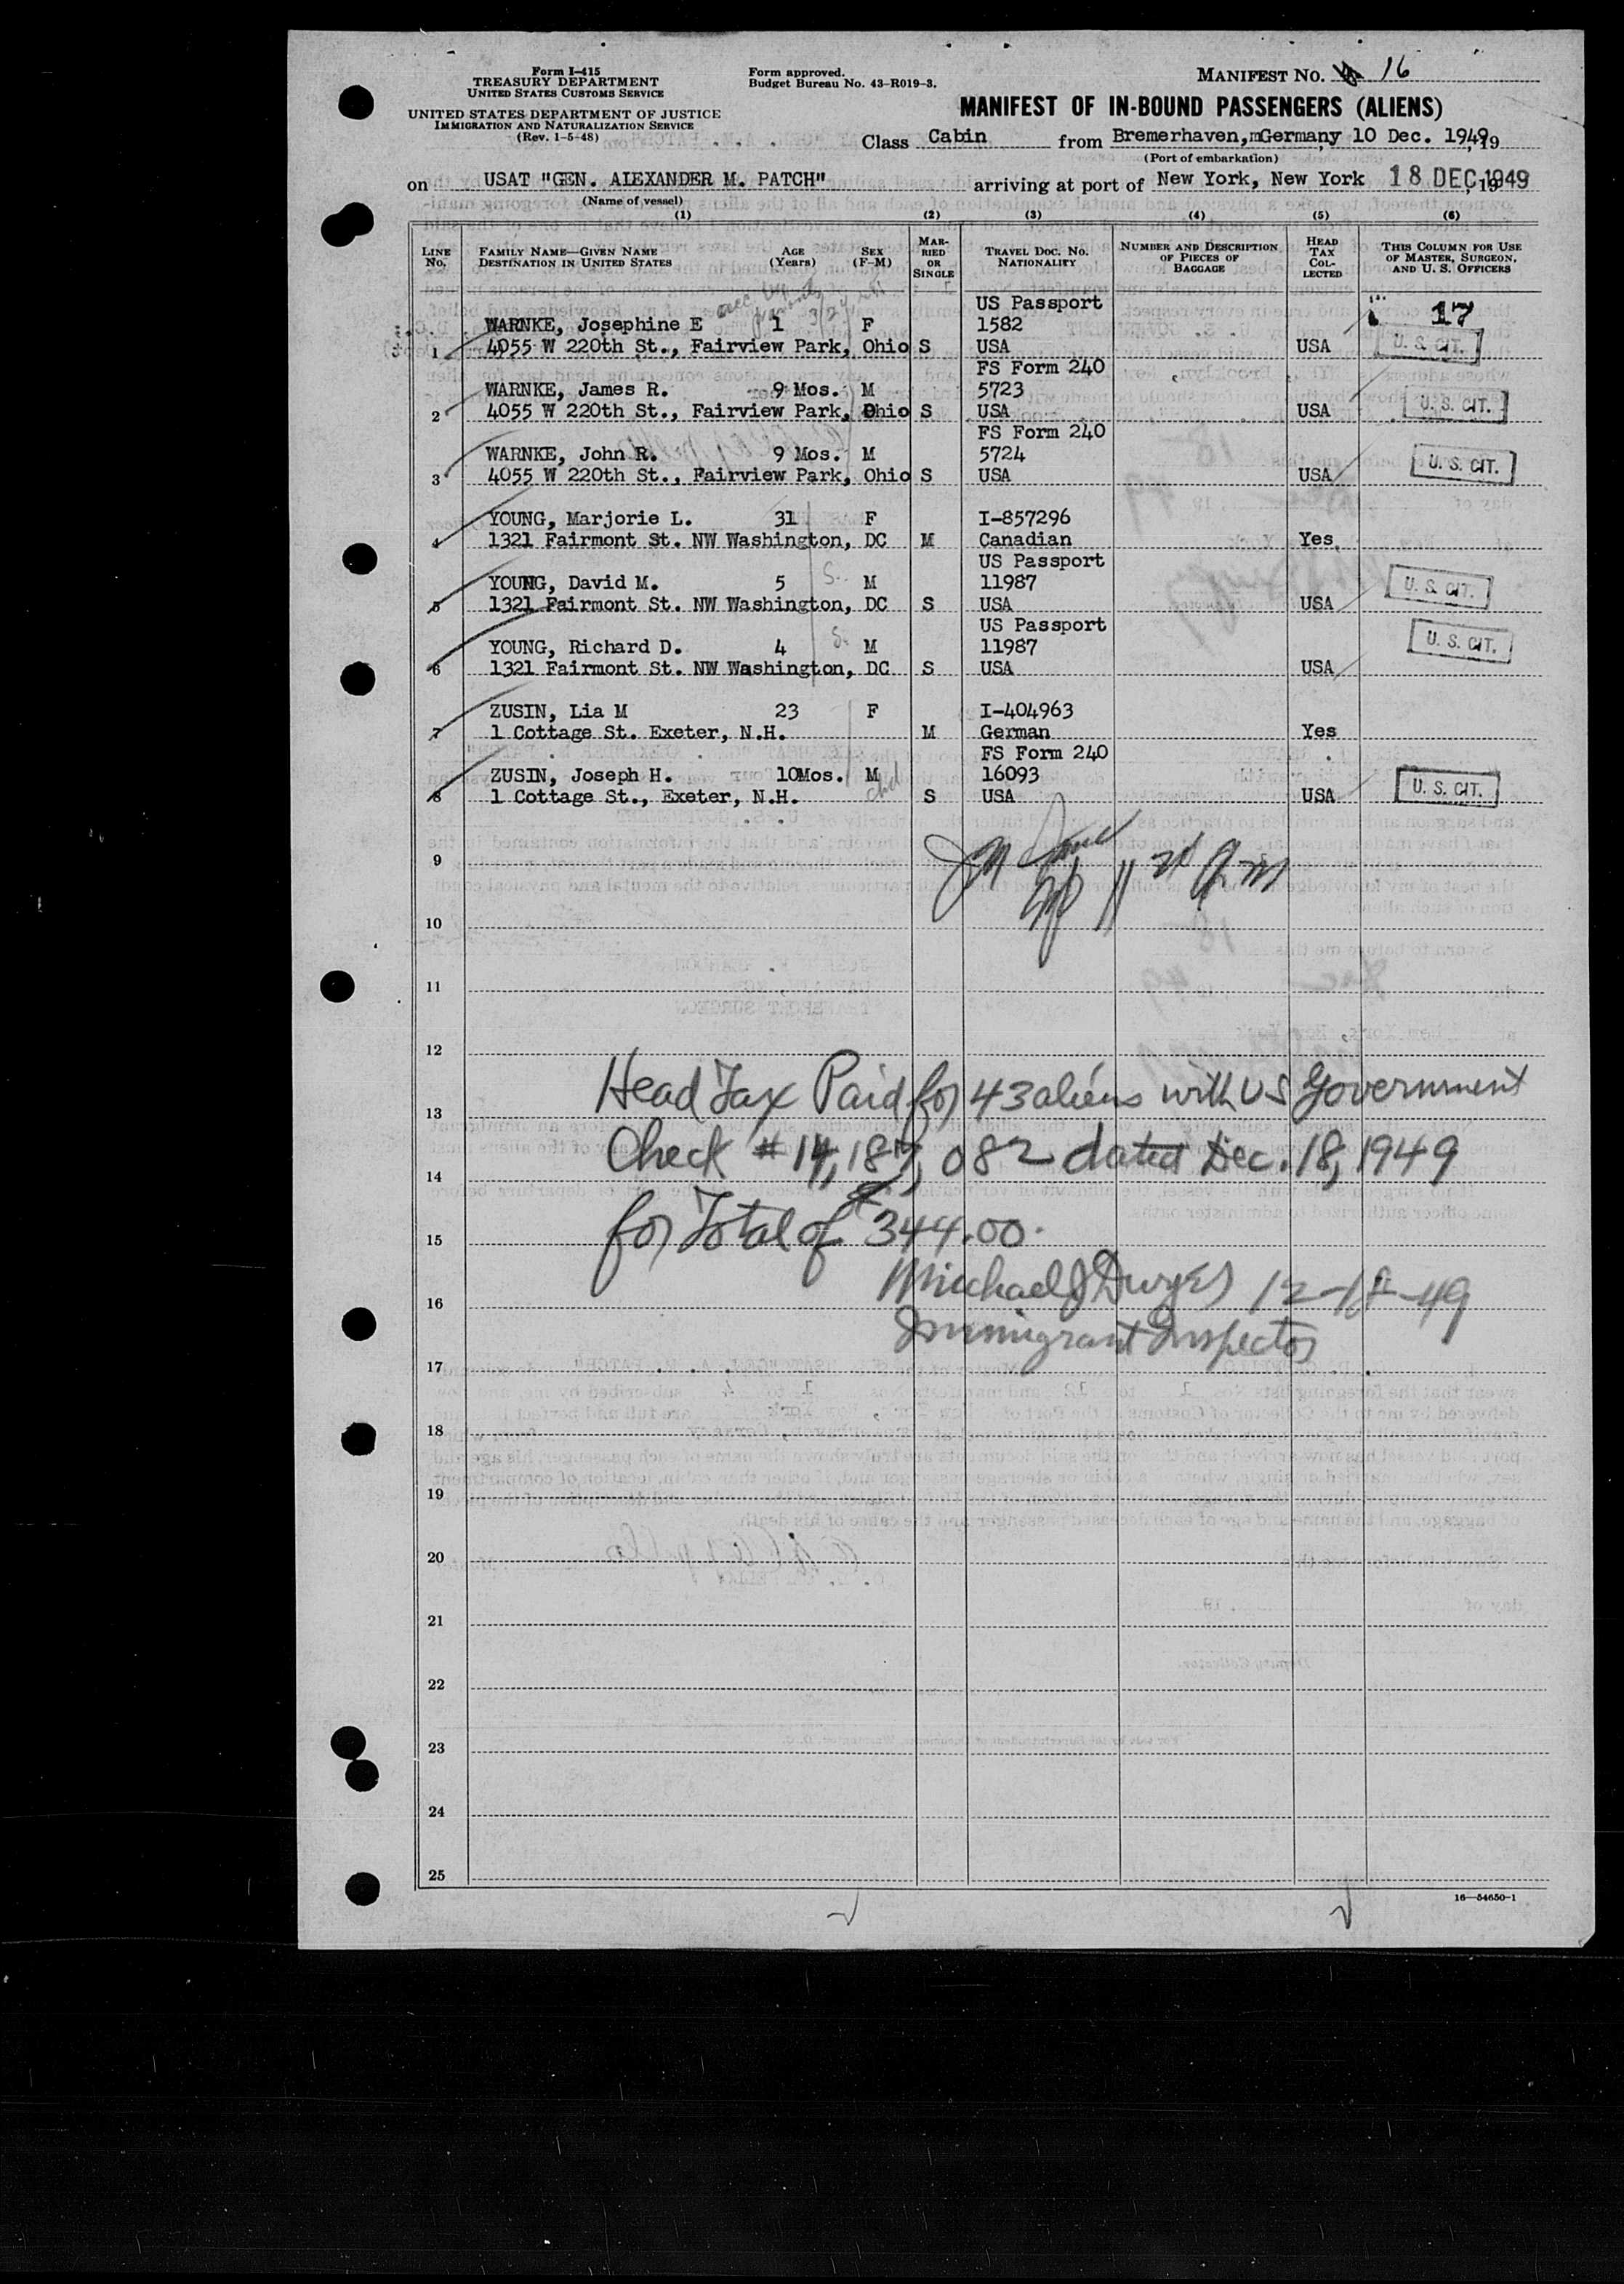 Form I-415
TREASURY DEPARTMENT
UNITED STATES CUSTOMS SERVICE
UNITED STATES DEPARTMENT OF JUSTICE
IMMIGRATION AND NATURALIZATION SERVICE
(Rev. 1-5-48)
Form approved.
Budget Bureau No. 43-R019-3.
MANIFEST NO. 16
MANIFEST OF IN-BOUND PASSENGERS (ALIENS)
Class Cabin from Bremerhaven, Germany 10 Dec. 1949, 19
(Port of embarkation)
on USAT "GEN. ALEXANDER M. PATCH" arriving at port of New York, New York 18 DEC 1949, 19
(Name of vessel)
(1) (2) (3) (4) (5) (6)
LINE No. FAMILY NAME—GIVEN NAME DESTINATION IN UNITED STATES AGE (Years) SEX (F-M) MARRIED OR SINGLE TRAVEL DOC. NO. NATIONALITY NUMBER AND DESCRIPTION OF PIECES OF BAGGAGE HEAD TAX COLLECTED THIS COLUMN FOR USE OF MASTER, SURGEON, AND U. S. OFFICERS
US Passport
WARNKE, Josephine E 1 F 1582 17
1 4055 W 220th St., Fairview Park, Ohio S USA USA U. S. CIT.
FS Form 240
WARNKE, James R. 9 Mos. M 5723
2 4055 W 220th St., Fairview Park, Ohio S USA USA U. S. CIT.
FS Form 240
WARNKE, John R. 9 Mos. M 5724
3 4055 W 220th St., Fairview Park, Ohio S USA USA U. S. CIT.
YOUNG, Marjorie L. 31 F I-857296
4 1321 Fairmont St. NW Washington, DC M Canadian Yes
US Passport
YOUNG, David M. 5 S. M 11987
5 1321 Fairmont St. NW Washington, DC S USA USA U. S. CIT.
US Passport
YOUNG, Richard D. 4 S. M 11987
6 1321 Fairmont St. NW Washington, DC S USA USA U. S. CIT.
ZUSIN, Lia M 23 F I-404963
7 1 Cottage St. Exeter, N.H. M German Yes
FS Form 240
ZUSIN, Joseph H. 10Mos. M 16093
8 1 Cottage St., Exeter, N.H. chd S USA USA U. S. CIT.
9
10
11
12
Head Tax Paid for 43 aliens with US Government
13
Check # 14,187,082 dated Dec. 18, 1949
14
for Total of $344.00.
15
Michael J Dwyer 12-18-49
16
Immigrant Inspector
17
18
19
20
21
22
23
24
25
16—54650-1